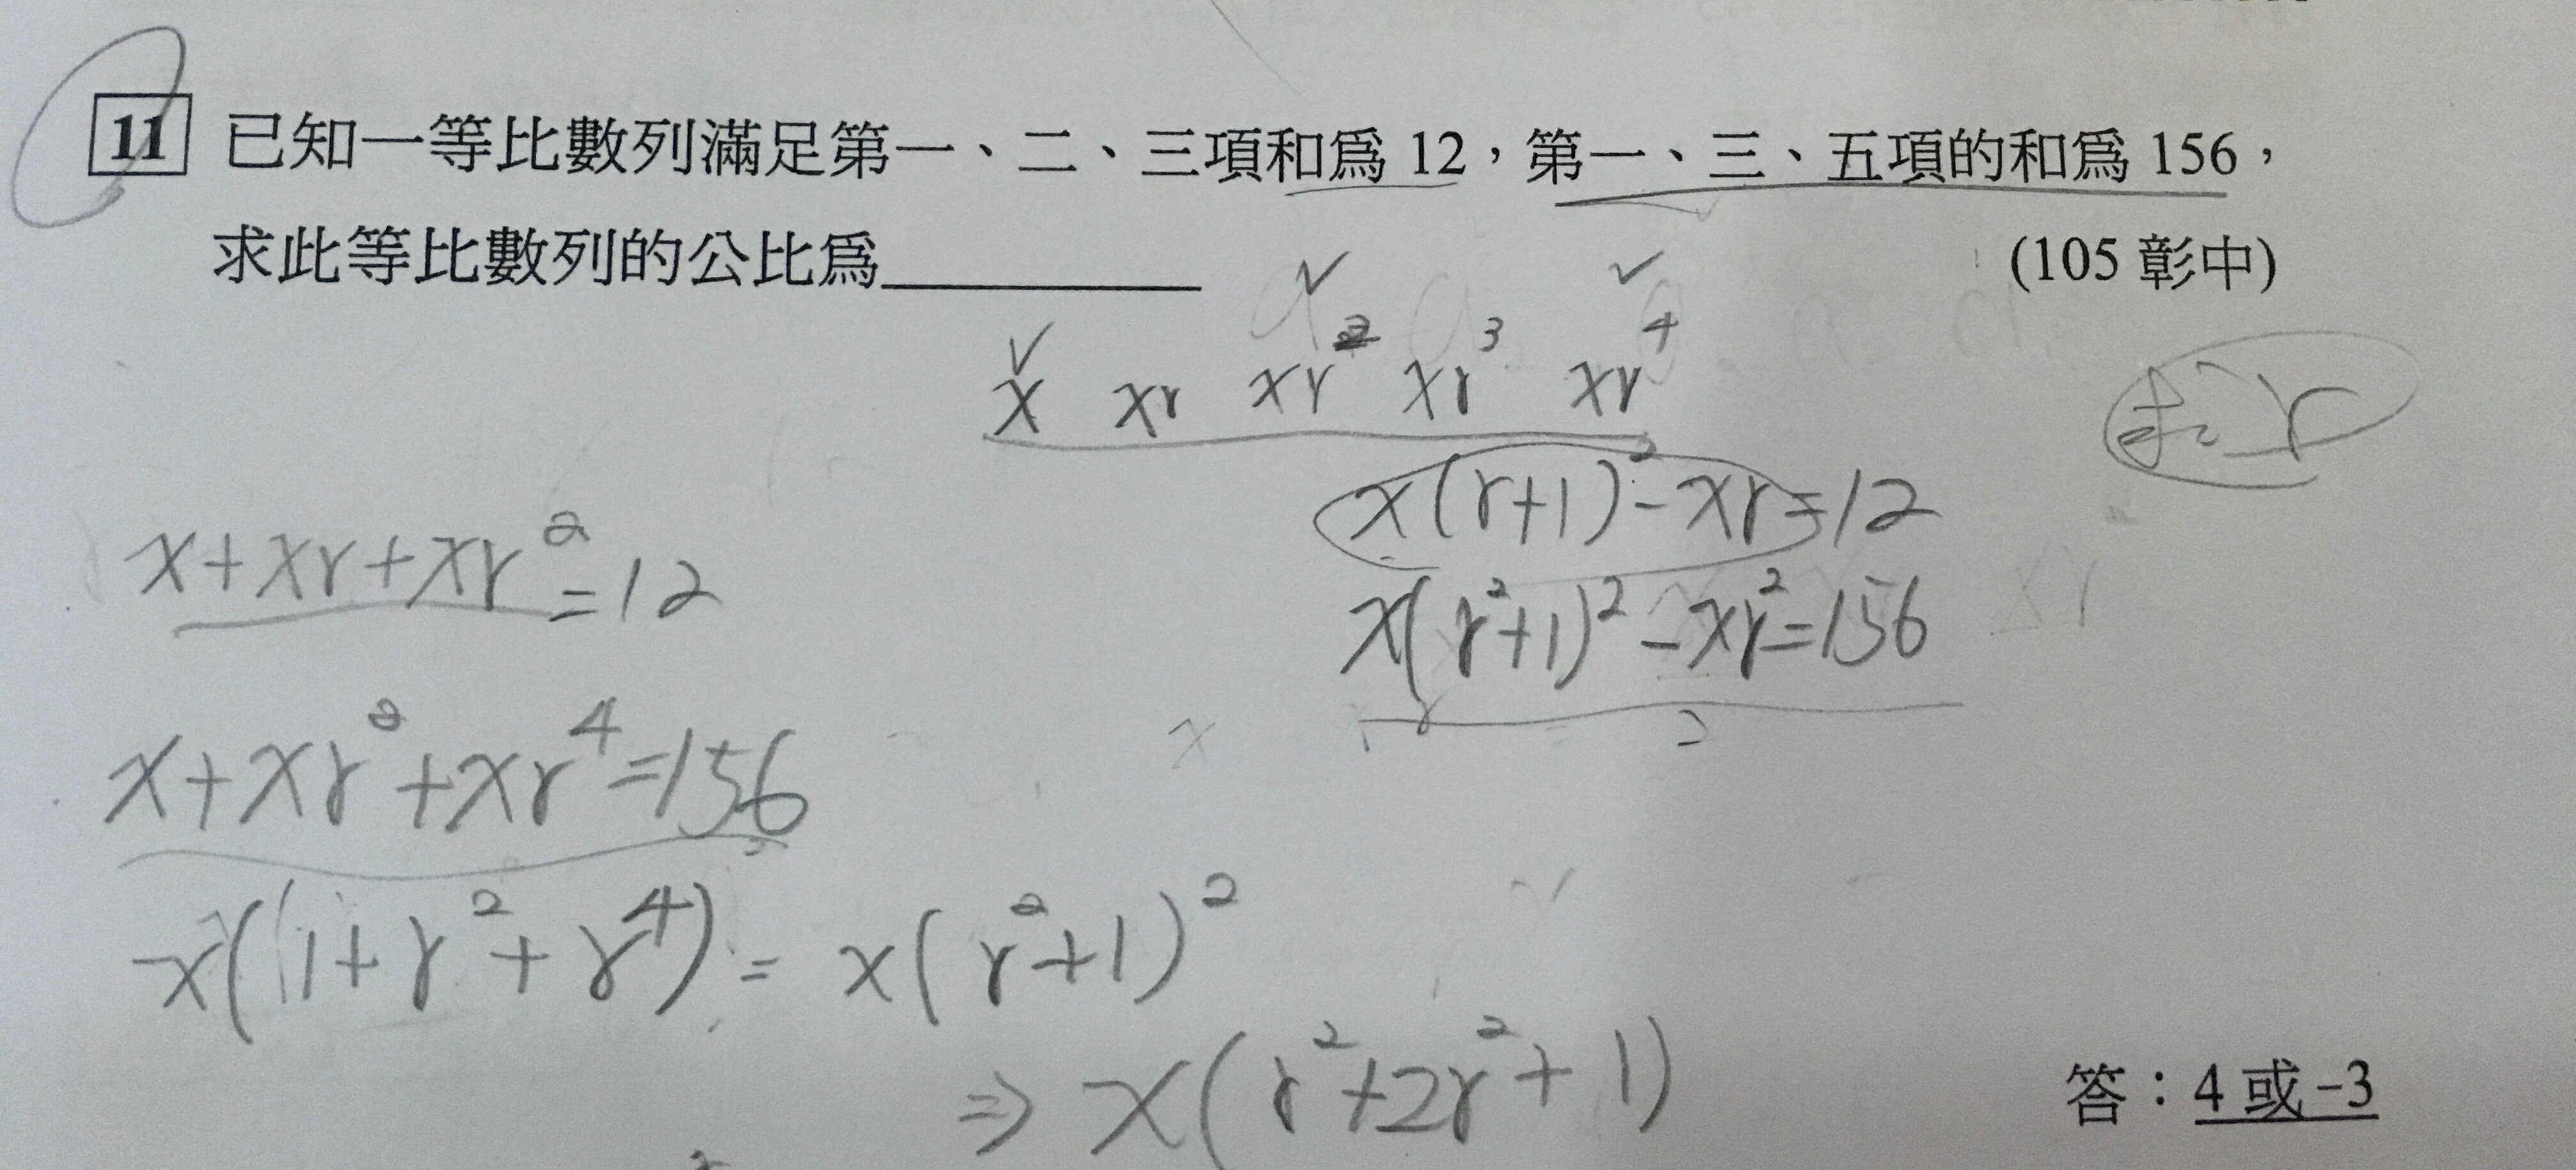 11 已知一等比數列滿足第一、二、三項和為 12，第一、三、五項的和為 156，
求此等比數列的公比為__________ (105 彰中)
x xr xr² xr³ xr⁴
求r
x(r+1)²-xr=12
x+xr+xr²=12
x(r²+1)²-xr²=156
x+xr²+xr⁴=156
x(1+r²+r⁴)=x(r²+1)²
⇒x(r²+2r²+1)
答：4 或 -3